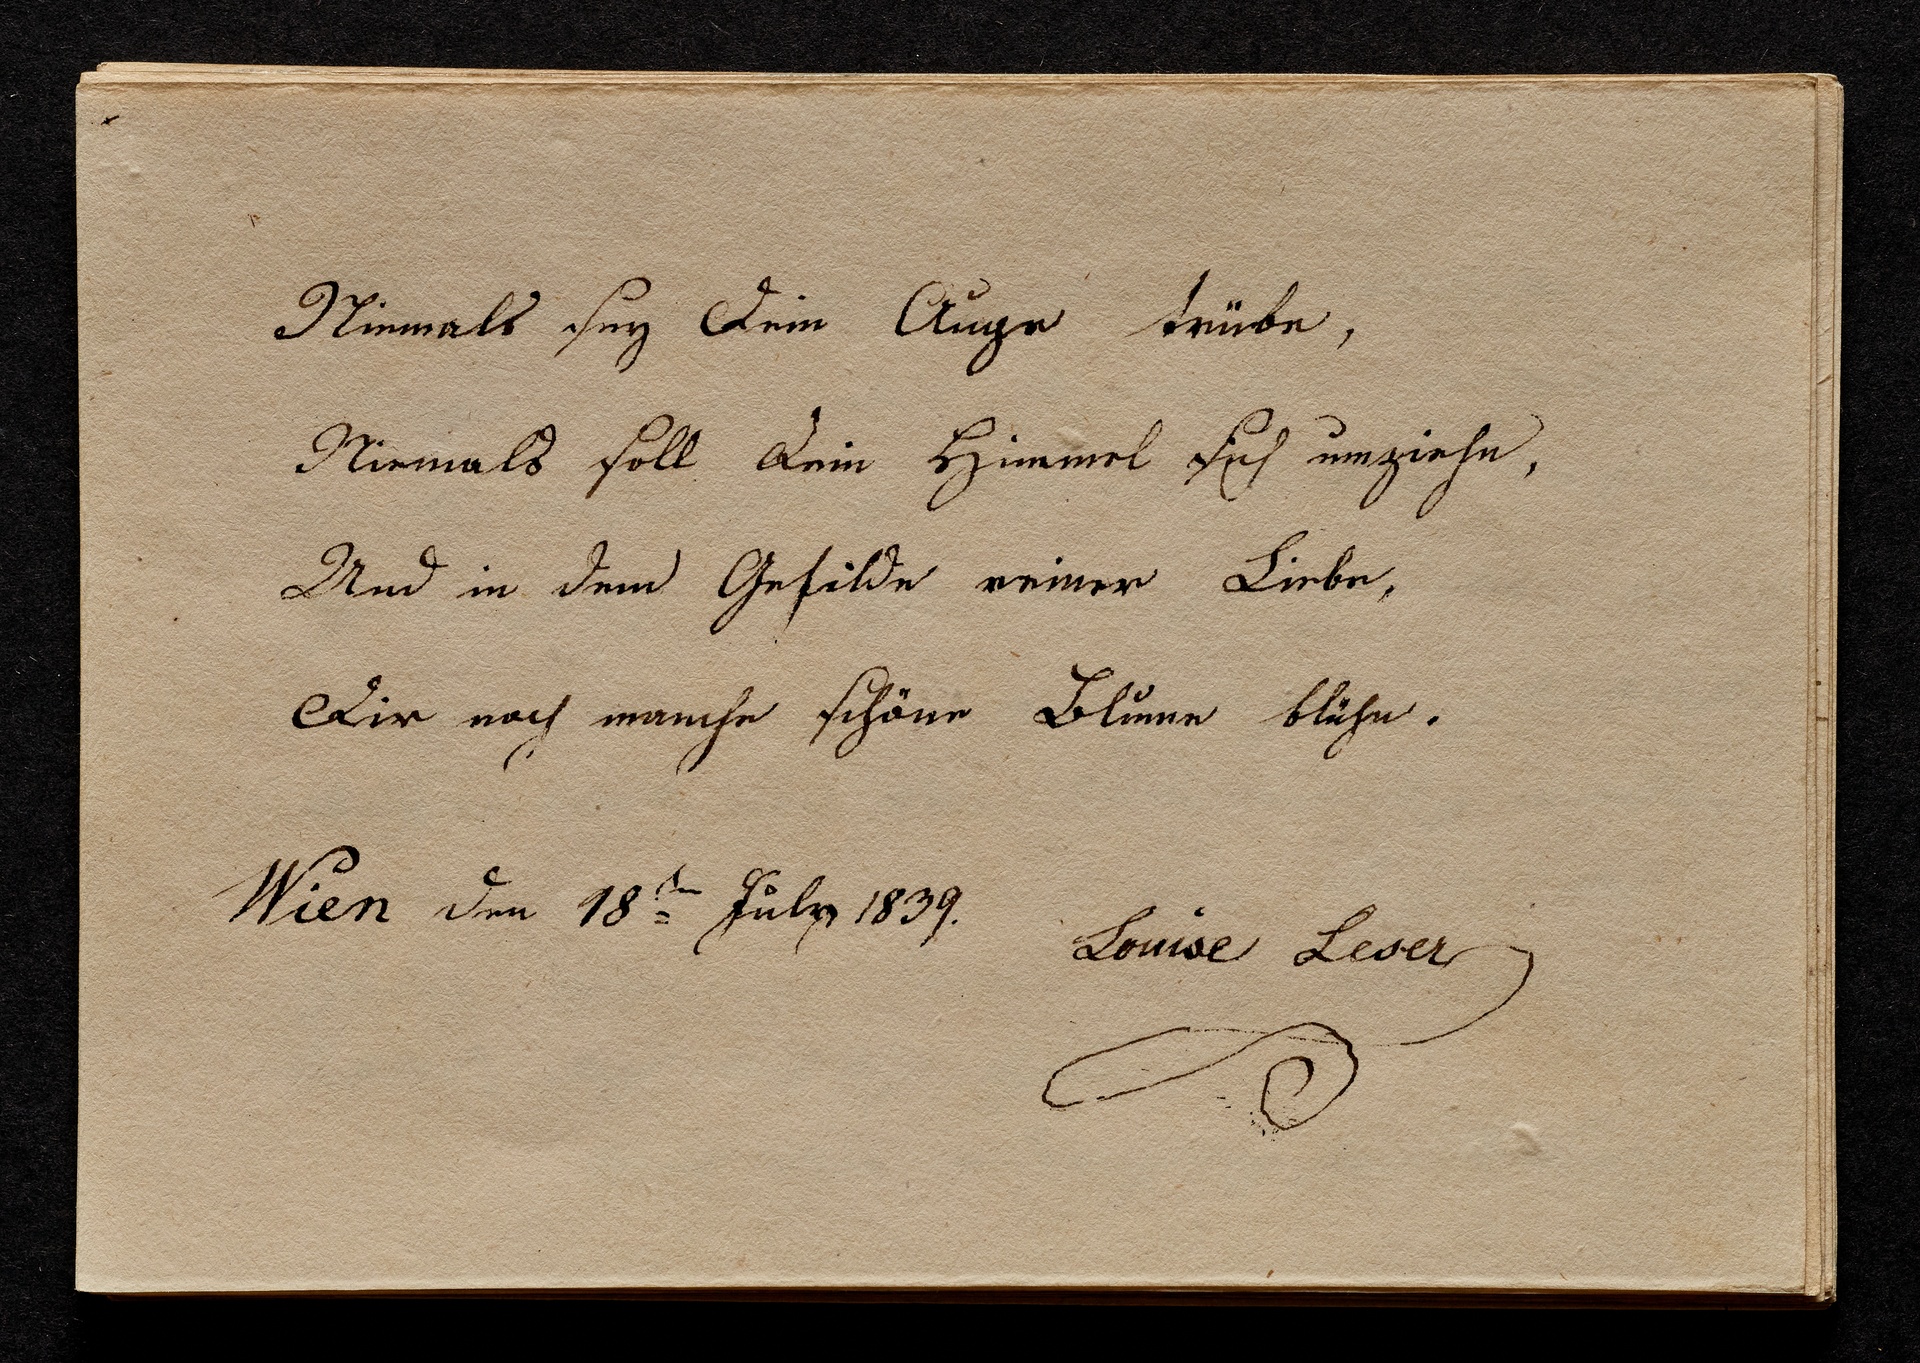 Niemals sey Dein Auge trübe,
Niemals soll Dein Himmel sich umziehn,
Und in dem Gefilde reiner Liebe,
Dir noch manche schöne Blume blühn.
Wien den 18ten July 1839.
Louise Leser